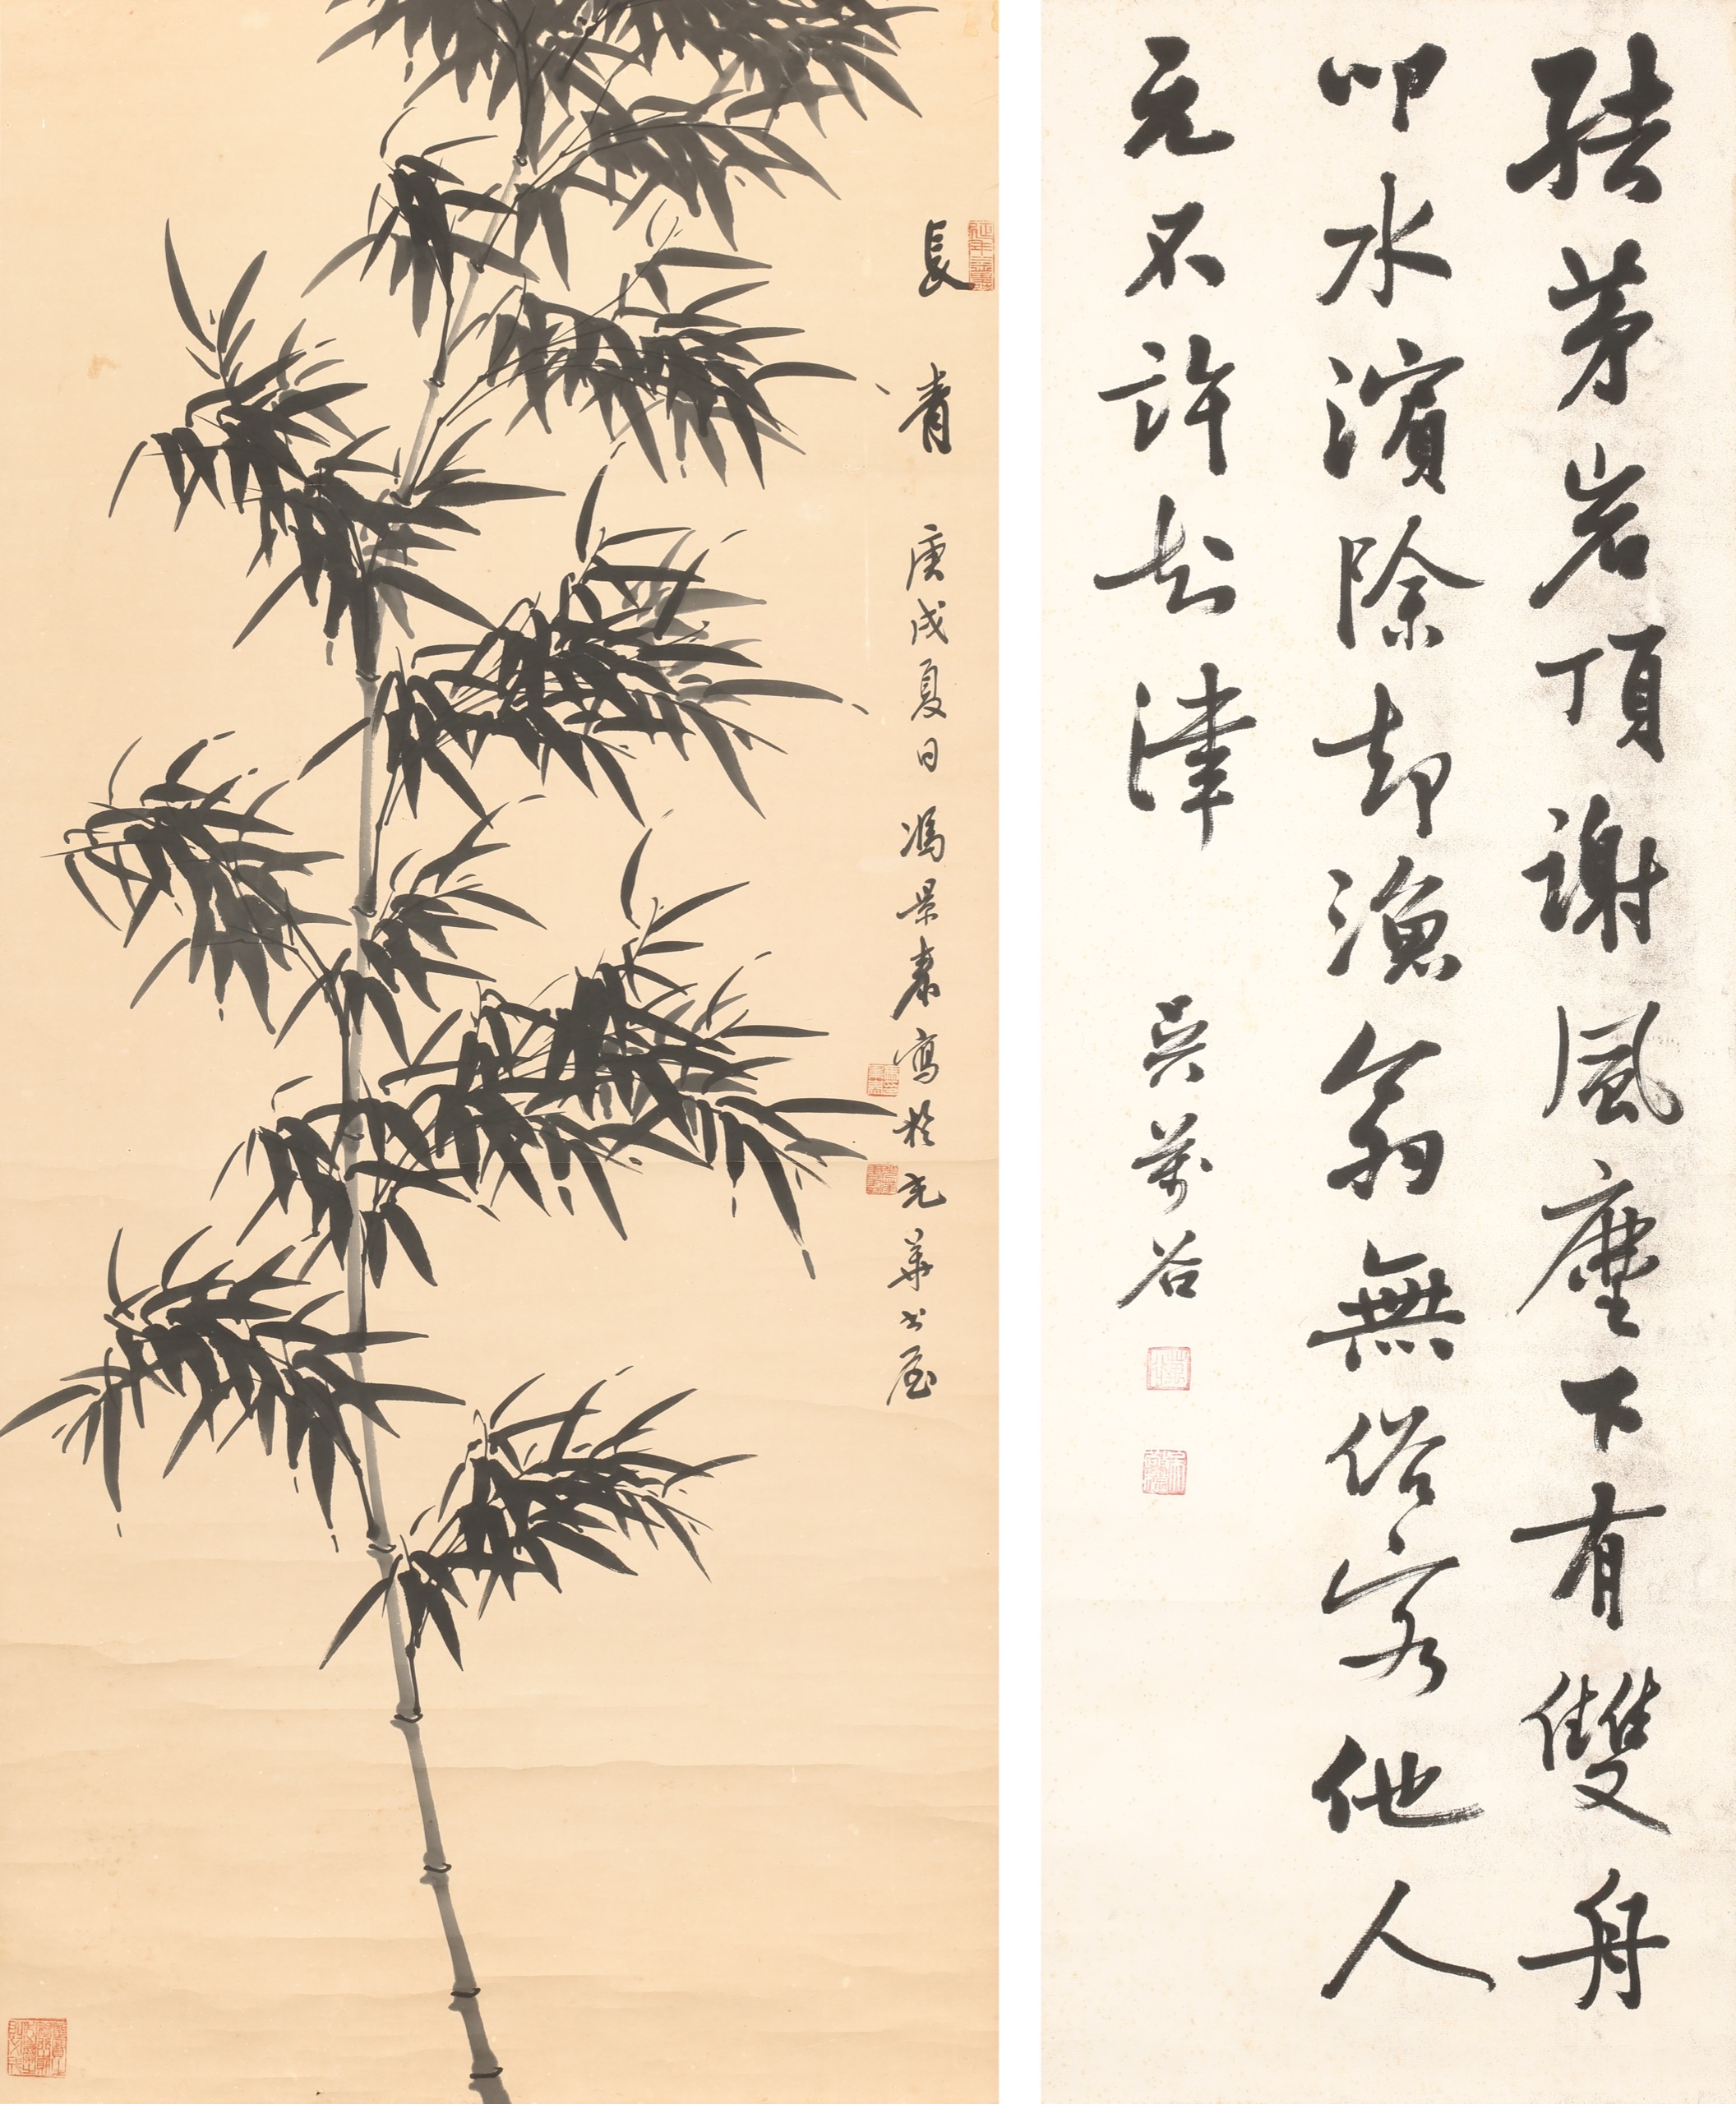 長青 庚戌夏日馮景泰寫於光華書屋
結茅岩頂謝風塵下有雙舟
叩水濱除卻漁翁無俗客他人
元不許知津 吳萬谷